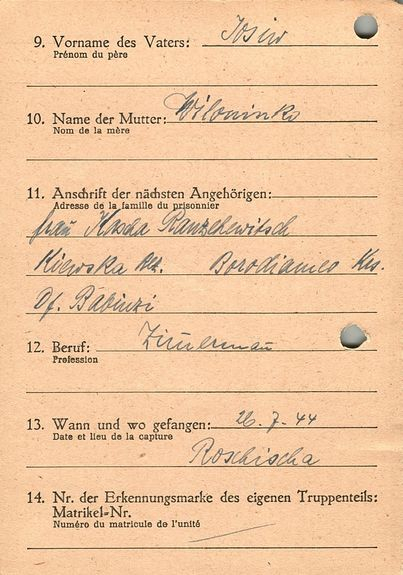 9. Vorname des Vaters: Josiw
Prénom du père
10. Name der Mutter: Wiloninko
Nom de la mère
11. Anschrift der nächsten Angehörigen:
Adresse de la famille du prisonnier
frau Kascha Ranzchewitsch
Kiewska Bez. Borodianco Krs.
Df. Babinzi
12. Beruf: Zimerman
Profession
13. Wann und wo gefangen: 26-7-44
Date et lieu de la capture
Roschischa
14. Nr. der Erkennungsmarke des eigenen Truppenteils:
Matrikel-Nr.
Numéro du matricule de l'unité